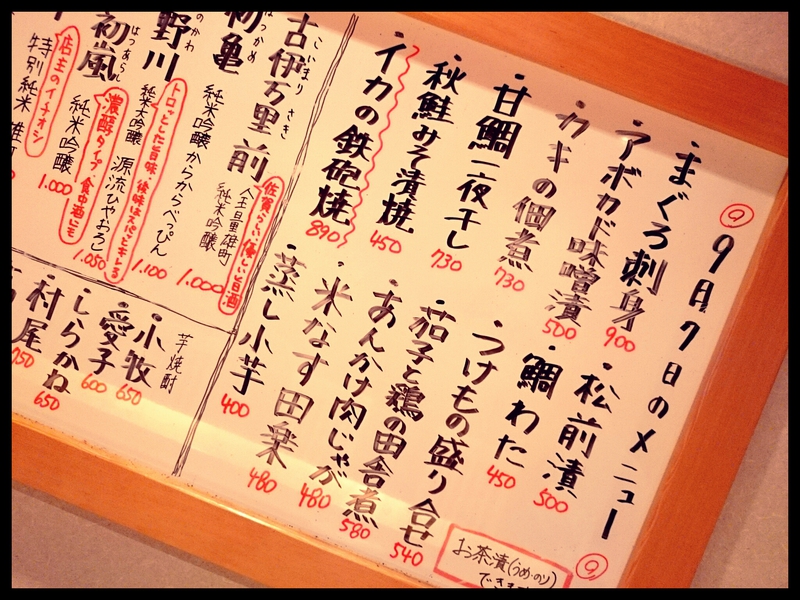 9月7日のメニュー
まぐろ刺身 900
アボカド味噌漬 500
カキの佃煮 730
甘鯛一夜干し 730
秋鮭みそ漬焼 450
イカの鉄砲焼 890
松前漬 500
鯛わた 450
つけもの盛り合せ 540
茄子と鶏の田舎煮 580
あんかけ肉じゃが 480
米なす田楽 480
蒸し小芋 400
お茶漬(うめ・のり)
でき
古伊万里 前
こいまり さき
佐賀らしい優しい旨酒
純米吟醸 1.000
初亀
はつかめ
純米吟醸からからべっぴん 1.100
野川
のかわ
トロッとした旨味・後味はスパッとキレる
純米大吟醸 源流ひやおろし 1.050
初嵐
はつあらし
濃醇タイプ、食中酒にも
純米吟醸 1.000
店主のイチオシ
特別純米 雄町
芋焼酎
小牧 650
愛子 600
しらかね 650
村尾 750